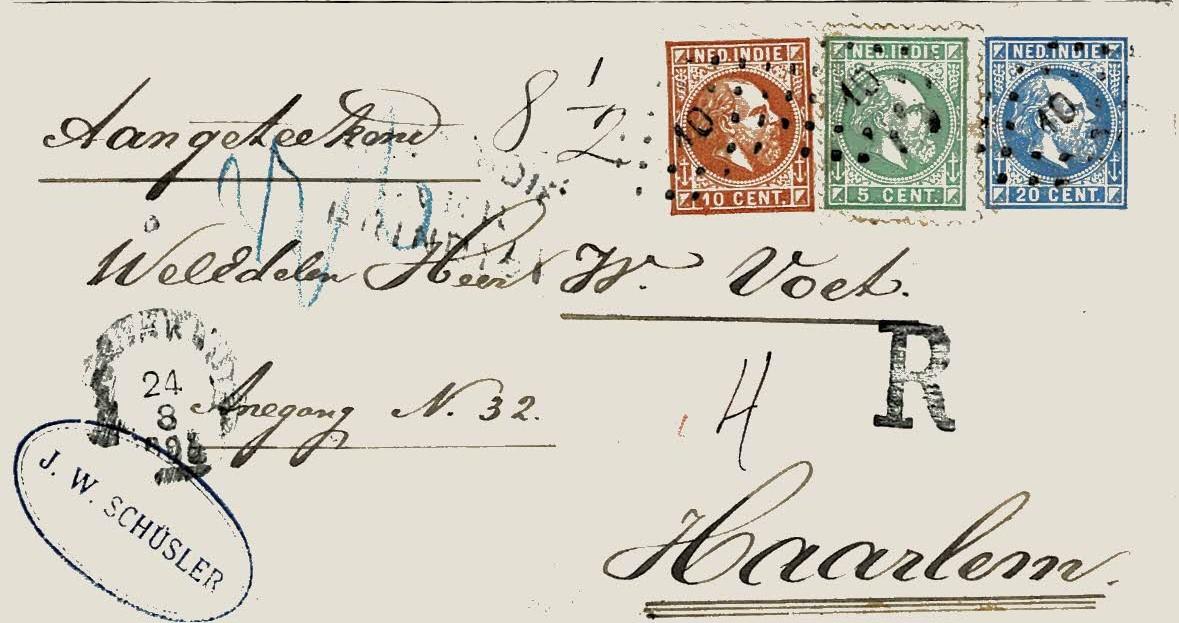 NED. INDIE NED. INDIE NED. INDIE
10 15 10
10 CENT. 5 CENT. 20 CENT.
Aangeteekend 8 1/2
WelEdelen Heer W. Voet.
R
24
8
Anegang N. 32.
4
J. W. SCHÜSLER
Haarlem.